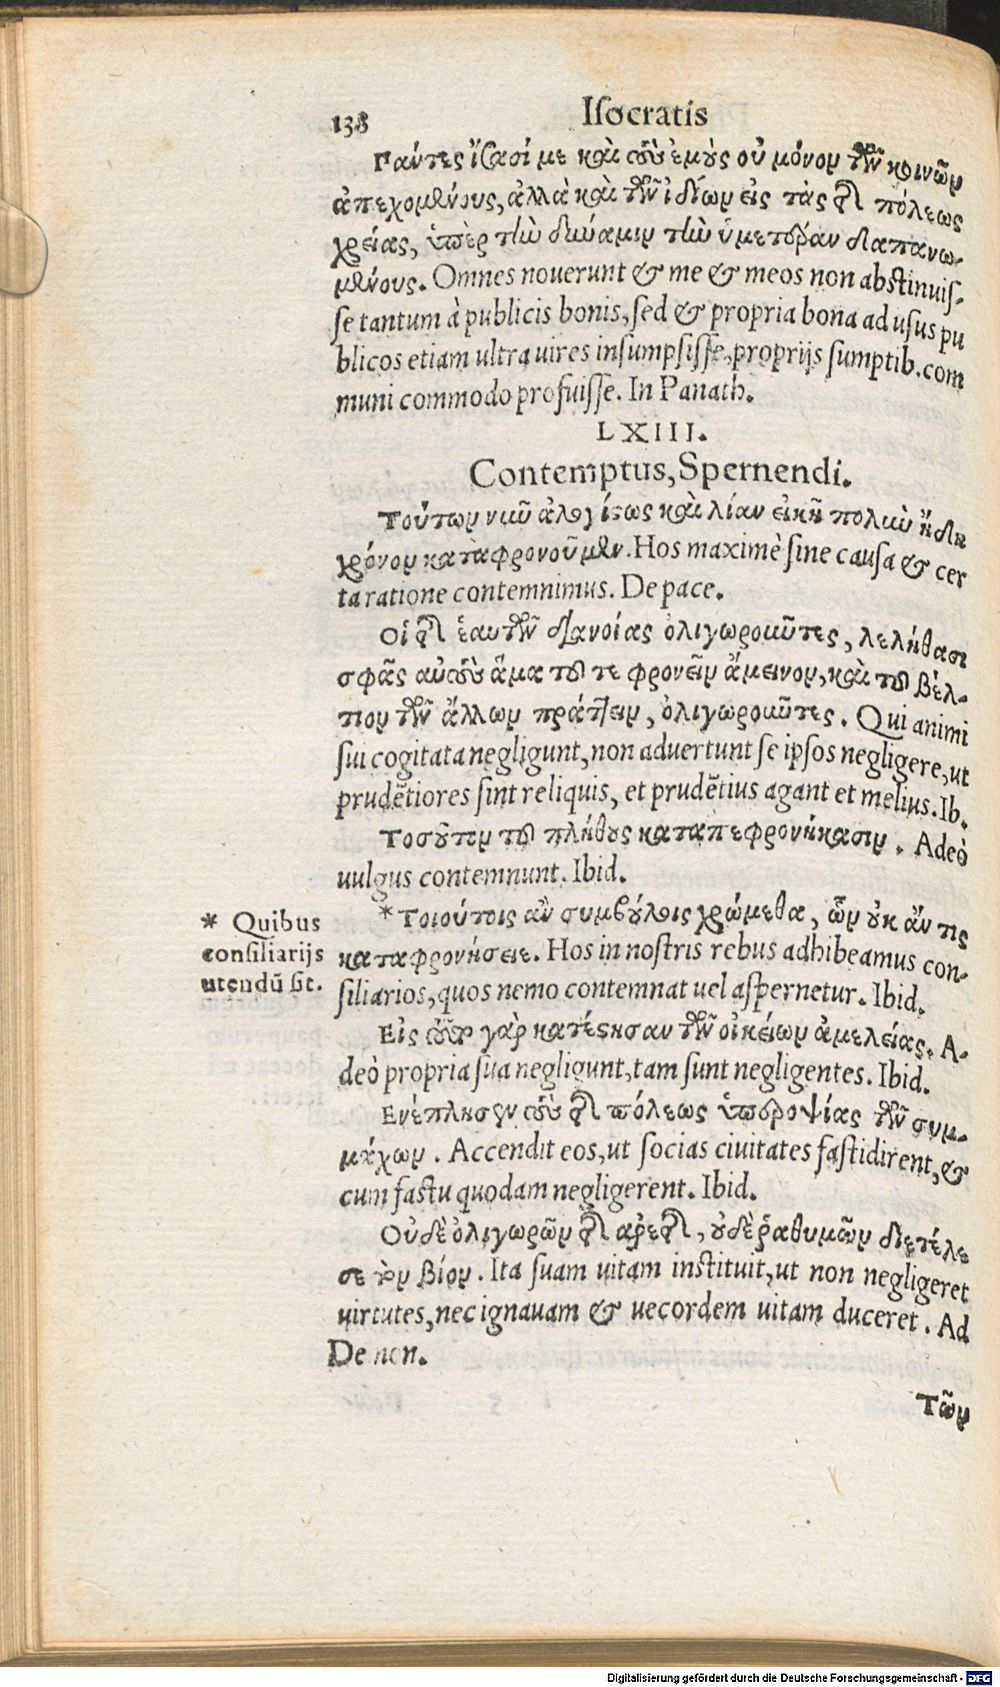 138 Isocratis
Πάντες ἴσασί με καὶ τοὺς ἐμοὺς οὐ μόνον τῶν κοινῶν
ἀπεχομένους, ἀλλὰ καὶ τῶν ἰδίων εἰς τὰς τῆς πόλεως
χρείας, ὑπὲρ τὴν δύναμιν τὴν ὑμετέραν δαπανω-
μένους. Omnes nouerunt & me & meos non abstinuis-
se tantum à publicis bonis, sed & propria bona ad usus pu
blicos etiam ultra uires insumpsisse, proprijs sumptib. com
muni commodo profuisse. In Panath.
LXIII.
Contemptus, Spernendi.
Τούτων νῦν ἀλογίστως καὶ λίαν εἰκῆ πολὺν ἤδη
χρόνον καταφρονοῦμεν. Hos maximè sine causa & cer
ta ratione contemnimus. De pace.
Οἱ τῆς ἑαυτῶν διανοίας ὀλιγωροῦντες, λελήθασι
σφᾶς αὐτοὺς ἅμα τοῦ τε φρονεῖν ἄμεινον, καὶ τοῦ βέλ-
τιον τῶν ἄλλων πράττειν, ὀλιγωροῦντες. Qui animi
sui cogitata negligunt, non aduertunt se ipsos negligere, ut
prudētiores sint reliquis, et prudētius agant et melius. Ib.
Τοσοῦτον τοῦ πλήθους καταπεφρονήκασιν. Adeò
uulgus contemnunt. Ibid.
* Quibus
consiliarijs
utendū sit.
*Τοιούτοις ἂν συμβούλοις χρώμεθα, ὧν οὐκ ἄν τις
καταφρονήσειε. Hos in nostris rebus adhibeamus con-
siliarios, quos nemo contemnat uel aspernetur. Ibid.
Εἰς τοῦτο γὰρ κατέστησαν τῶν οἰκείων ἀμελείας. A-
deò propria sua negligunt, tam sunt negligentes. Ibid.
Ἐνέπλησεν τοὺς τῆς πόλεως ὑπεροψίας τῶν συμ-
μάχων. Accendit eos, ut socias ciuitates fastidirent, &
cum fastu quodam negligerent. Ibid.
Οὐδὲ ὀλιγωρῶν τῆς ἀρετῆς, οὐδὲ ῥαθυμῶν διετέλε
σε τὸν βίον. Ita suam uitam instituit, ut non negligeret
uirtutes, nec ignauam & uecordem uitam duceret. Ad
Demon.
Τῶν
Digitalisierung gefördert durch die Deutsche Forschungsgemeinschaft - DFG